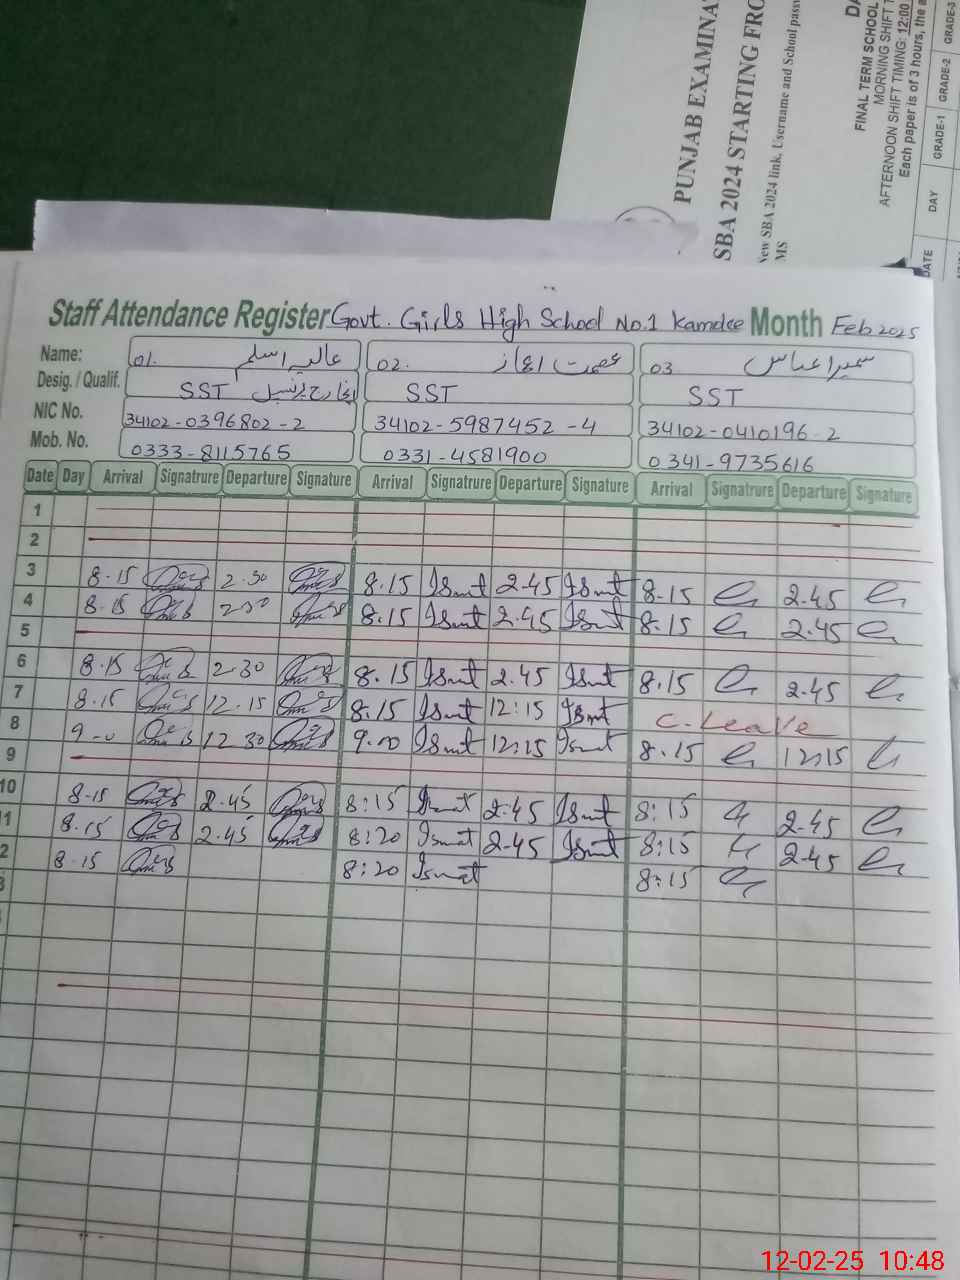 PUNJAB EXAMINA
SBA 2024 STARTING FRO
New SBA 2024 link, Username and School passw
MS
DA
FINAL TERM SCHOOL
MORNING SHIFT T
AFTERNOON SHIFT TIMING: 12:00
Each paper is of 3 hours, the a
DATE DAY GRADE-1 GRADE-2 GRADE-3
Staff Attendance Register Govt. Girls High School No.1 Kamdee Month Feb 2025
Name: 01. عالیہ اسلم 02. عصمت اعجاز 03 سمیرا عباس
Desig. / Qualif. SST انچارج پرنسپل SST SST
NIC No. 34102-0396802-2 34102-5987452-4 34102-0410196-2
Mob. No. 0333-8115765 0331-4581900 0341-9735616
Date Day Arrival Signatrure Departure Signature Arrival Signatrure Departure Signature Arrival Signatrure Departure Signature
1
2
3 8.15 2.30 8.15 Ismt 2.45 Ismt 8.15 2.45
4 8.15 2.30 8.15 Ismt 2.45 Ismt 8.15 2.45
5
6 8.15 2.30 8.15 Ismt 2.45 Ismt 8.15 2.45
7 8.15 12.15 8.15 Ismt 12:15 Ismt C.Leave
8 9-0 12.30 9.00 Ismt 12:15 Ismt 8.15 12:15
9
10 8-15 2.45 8:15 Ismat 2.45 Ismt 8:15 2.45
1 8.15 2.45 8:20 Ismat 2.45 Ismt 8:15 2.45
2 8.15 8:20 Ismat 8:15
3
12-02-25 10:48